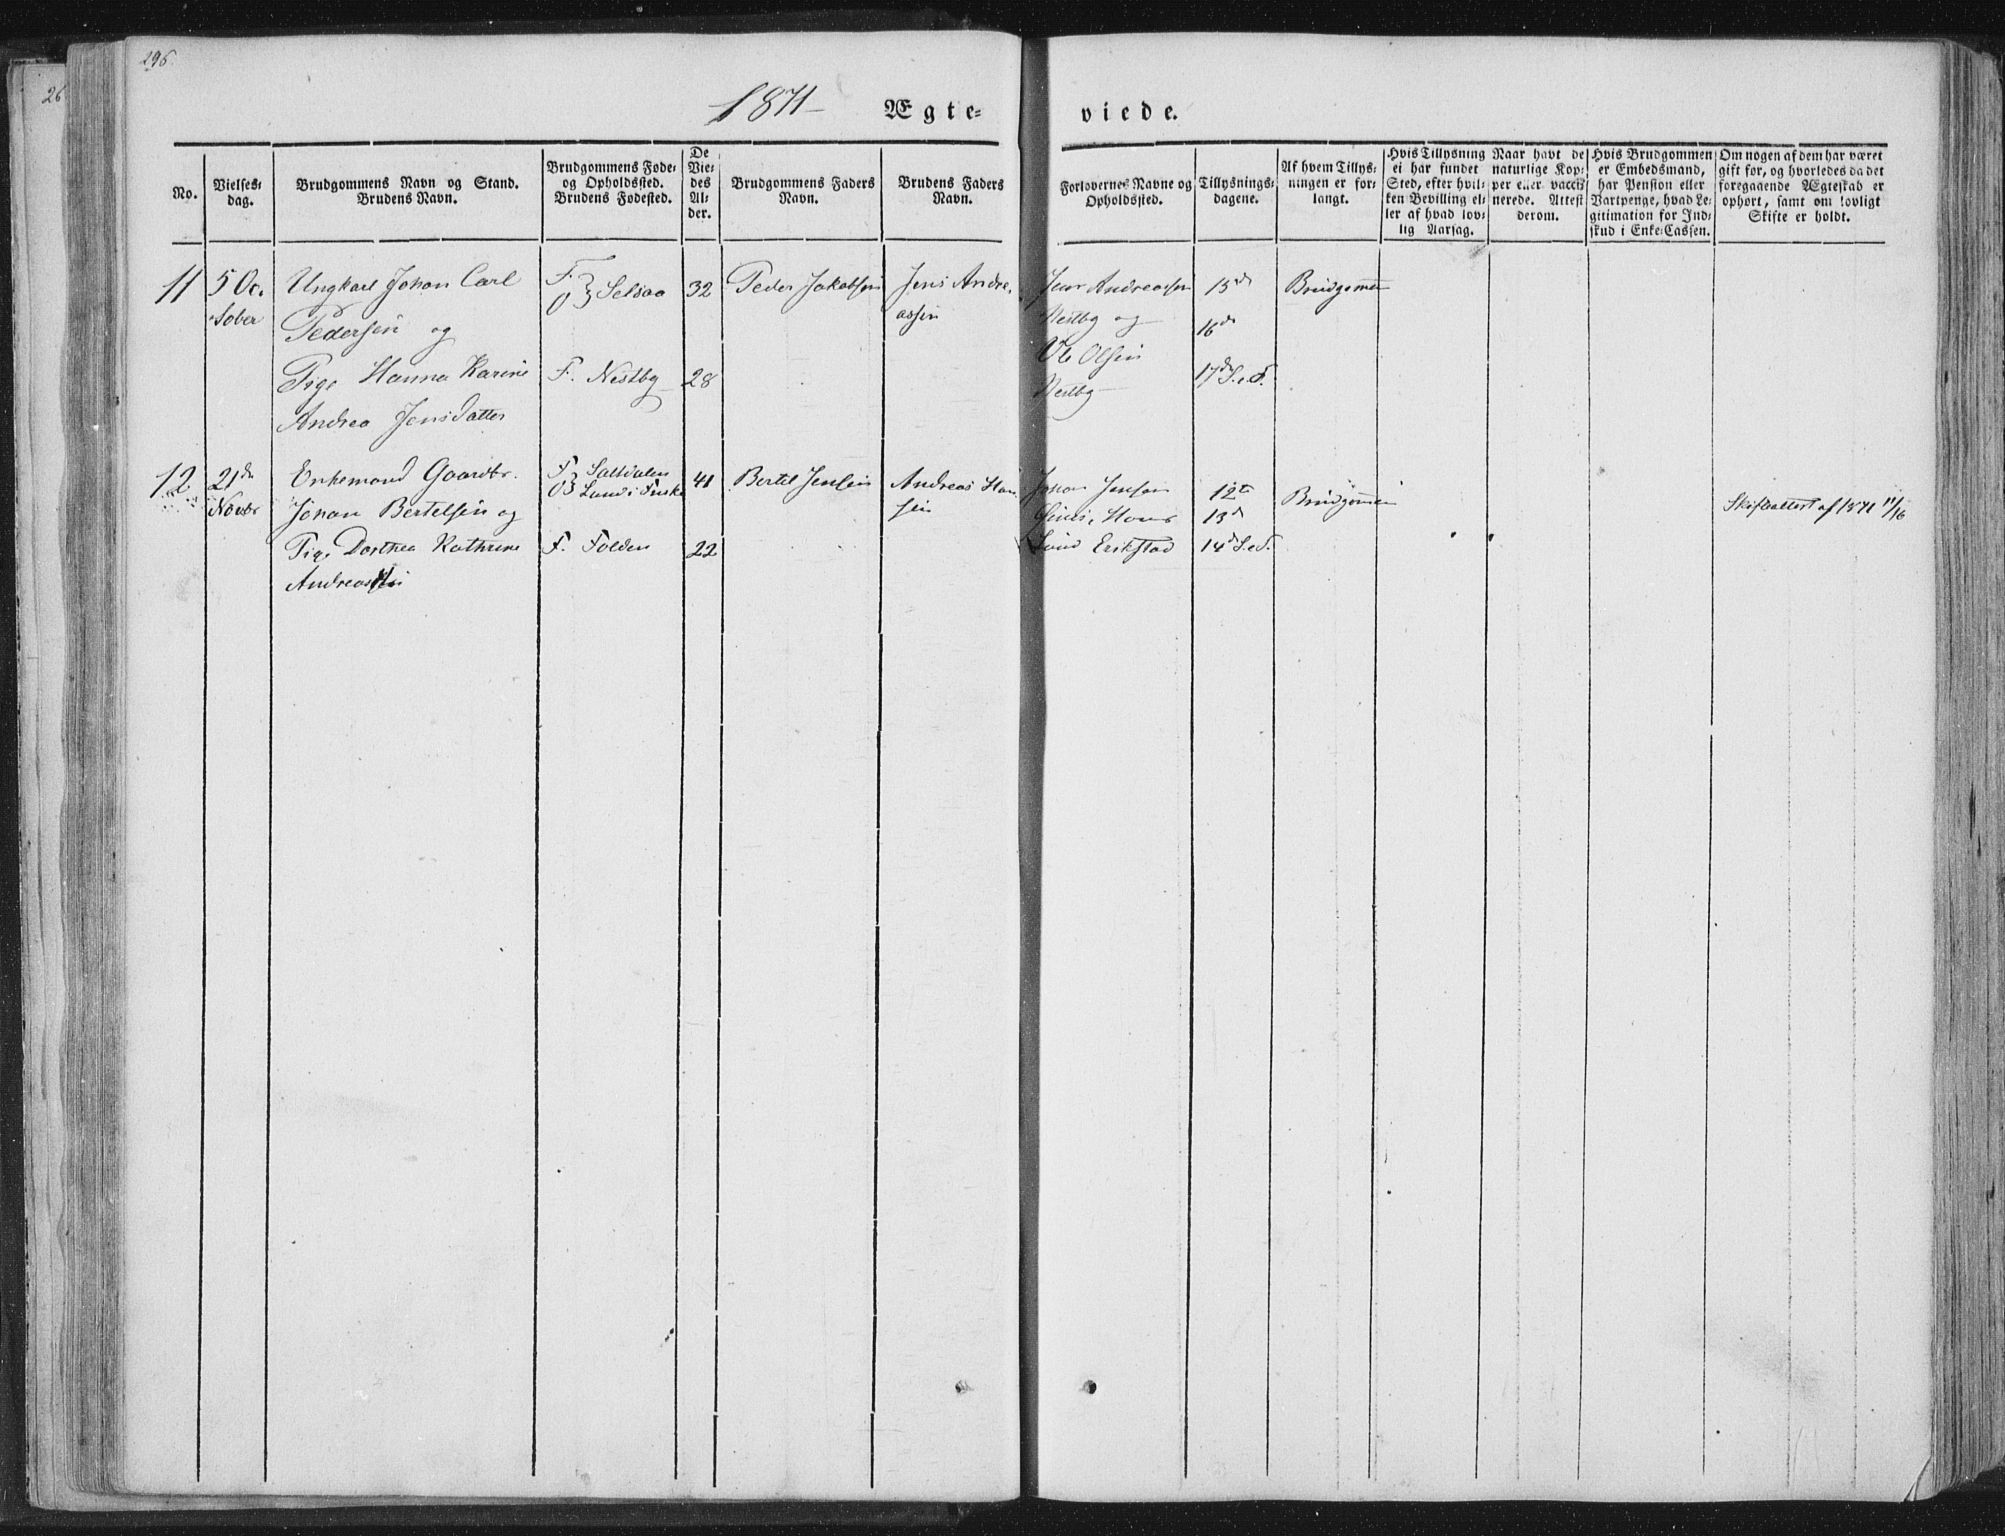 296.
26
1871
Ægte=
viede.
No.
Vielses=
dag.
Brudgommens Navn og Stand.
Brudens Navn.
Brudgommens Føde=
og Opholdssted.
Brudens Fødested.
De
Vie=
des
Al=
der.
Brudgommens Faders
Navn.
Brudens Faders
Navn.
Forlovernes Navne og
Opholdssted.
Tillysnings=
dagene.
Af hvem Tillys=
ningen er for=
langt.
Hvis Tillysning
ei har fundet
Sted, efter hvil=
ken Bevilling el=
ler af hvad lov=
lig Aarsag.
Naar havt de
naturlige Kop=
per eller vacci=
nerede. Attest
derom.
Hvis Brudgommen
er Embedsmand,
har Pension eller
Vartpenge, hvad Le=
gitimation for Ind=
skud i Enke=Cassen.
Om nogen af dem har været
gift før, og hvorledes da det
foregaaende Ægteskab er
ophørt, samt om lovligt
Skifte er holdt.
11
5 Oc.
tober
Ungkarl Johan Carl
Pedersen og
Pige Hanna Karine
Andrea Jensdatter
F.
O } Selsaa
F. Nestby
32
28
Peder Jakobsen
Jens Andre
assen
Jens Andreassen
Nestby og
Ole Olsen
Nestby
15de
16de
17de S.e.T.
Brudgommen
12
21de
Novbr
Enkemand Gaardbr.
Johan Bertelsen og
Pige Dorthea Kathrine
Andreassen
F. Saltdalen
O } Lund i Fuske
F. Folden
41
22
Bertel Jensen
Andreas Han
sen
Johan Jensen
Hans
Lund Erikstad
12te
13de
14de S.e.T.
Brudgommen
Skifteattest af 1871 11/16